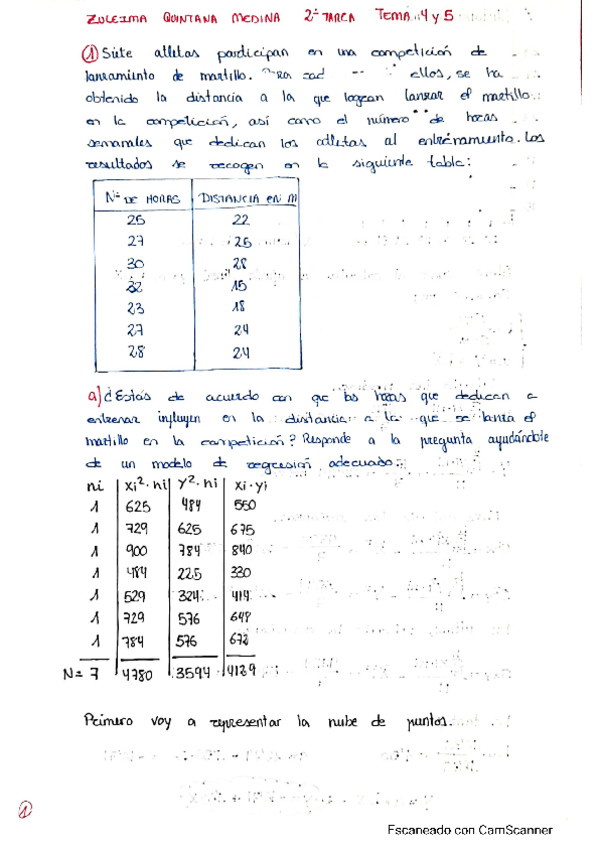 ZULEIMA QUINTANA MEDINA 2ª TAREA TEMA 4 y 5
① Siete atletas participan en una competición de
lanzamiento de martillo. ellos, se ha
obtenido la distancia a la que logran lanzar el martillo
en la competición, así como el número de horas
semanales que dedican los atletas al entrenamiento. Los
resultados se recogen en la siguiente tabla:
Nº DE HORAS DISTANCIA EN M
25 22
27 25
30 28
15
23 18
27 24
28 24
a) ¿Estás de acuerdo con que las horas que dedican a
entrenar influyen en la distancia a la que se lanza el
martillo en la competición? Responde a la pregunta ayudándote
de un modelo de regresión adecuado.
ni xi²·ni y²·ni xi·yi
1 625 484 550
1 729 625 675
1 900 784 840
1 484 225 330
1 529 324 414
1 729 576 648
1 784 576 672
N= 7 4780 3594 4129
Primero voy a representar la nube de puntos.
①
Escaneado con CamScanner